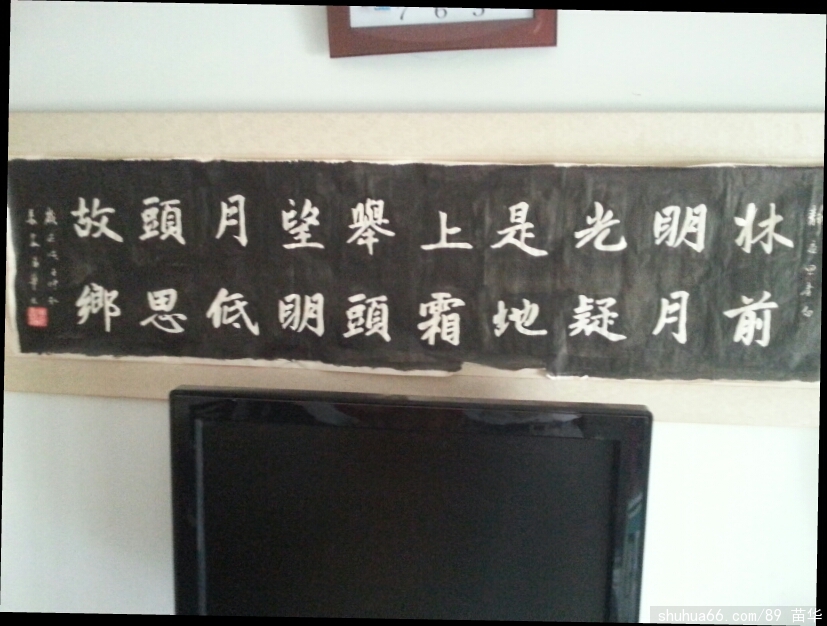 7 6 5
靜夜思李白
牀前
明月
光疑
是地
上霜
舉頭
望明
月低
頭思
故鄉
shuhua66.com/89 苗华